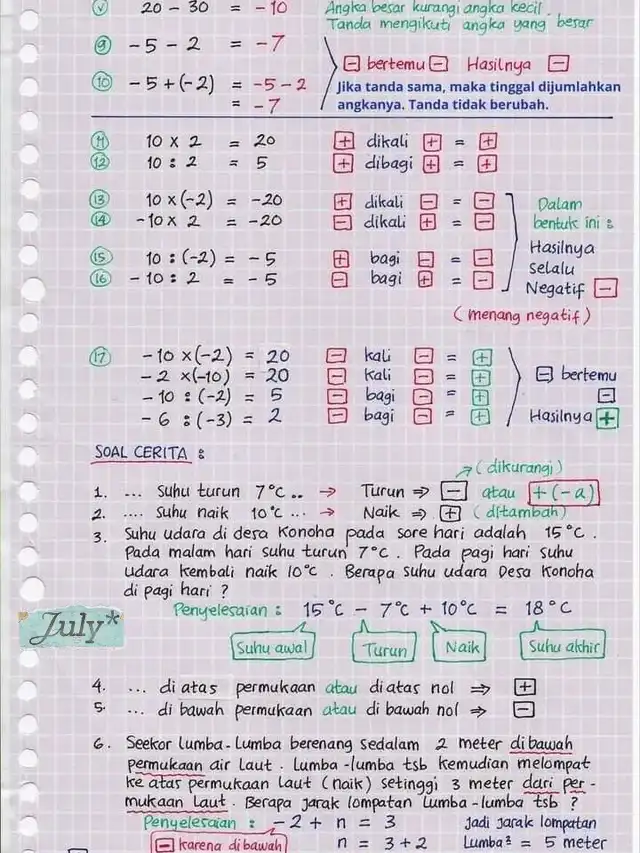 v 20 - 30 = -10 Angka besar kurangi angka kecil.
Tanda mengikuti angka yang besar
9 -5 - 2 = -7
- bertemu - Hasilnya -
10 -5 + (-2) = -5 - 2 Jika tanda sama, maka tinggal dijumlahkan
= -7 angkanya. Tanda tidak berubah.
11 10 x 2 = 20 + dikali + = +
12 10 : 2 = 5 + dibagi + = +
13 10 x (-2) = -20 + dikali - = - Dalam
14 -10 x 2 = -20 - dikali + = - bentuk ini :
Hasilnya
15 10 : (-2) = -5 + bagi - = - Selalu
16 -10 : 2 = -5 - bagi + = - Negatif -
(menang negatif)
17 -10 x (-2) = 20 - kali - = +
-2 x (-10) = 20 - kali - = + - bertemu
-10 : (-2) = 5 - bagi - = + -
-6 : (-3) = 2 - bagi - = + Hasilnya +
SOAL CERITA :
(dikurangi)
1. ... Suhu turun 7°C .. → Turun ⇒ - atau + (-a)
2. .... Suhu naik 10°C ... → Naik ⇒ + (ditambah)
3. Suhu udara di desa Konoha pada sore hari adalah 15°C.
Pada malam hari suhu turun 7°C. Pada pagi hari suhu
udara kembali naik 10°C. Berapa suhu udara Desa Konoha
di pagi hari ?
July*
Penyelesaian : 15°C - 7°C + 10°C = 18°C
Suhu awal Turun Naik Suhu akhir
4. ... di atas permukaan atau diatas nol ⇒ +
5. ... di bawah permukaan atau di bawah nol ⇒ -
6. Seekor lumba-lumba berenang sedalam 2 meter dibawah
permukaan air laut. Lumba-lumba tsb kemudian melompat
ke atas permukaan laut (naik) setinggi 3 meter dari per-
mukaan laut. Berapa jarak lompatan lumba-lumba tsb ?
Penyelesaian : -2 + n = 3 Jadi jarak lompatan
- karena dibawah n = 3+2 Lumba² = 5 meter